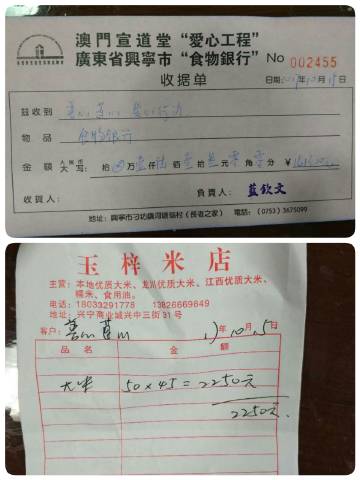 澳門宣道堂“愛心工程”
廣東省興寧市“食物銀行”
No 002455
收据单
日期
茲收到
物品 食物銀行
金額 人民幣大写: 拾 万 仟 佰 拾 元 角 分 ¥
收貨人: 負責人: 藍欽文
地址: 興寧市刁坊 (長者之家) 電話: (0753) 3675099
玉梓米店
主营: 本地优质大米、龙川优质大米、江西优质大米、
糯米、食用油。
电话: 18033291778 13826669649
地址: 兴宁商业城兴中三街31号
客户: 年10月15日
品名 金额
大米 50×45=2250元
2250元